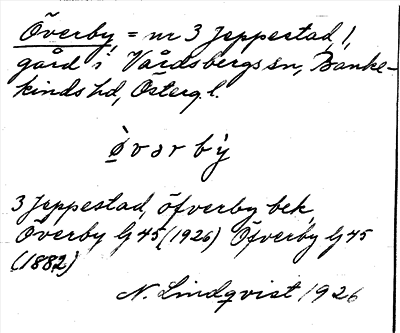 Överby = nr 3 Jeppestad 1,
gård i Vårdsbergs sn, Banke-
kinds hd, Österg. l.
ø̀vərbý
3 Jeppestad, öfverby bek.
Överby G 45 (1926) Öfverby G 45
(1882)
N. Lindqvist 1926